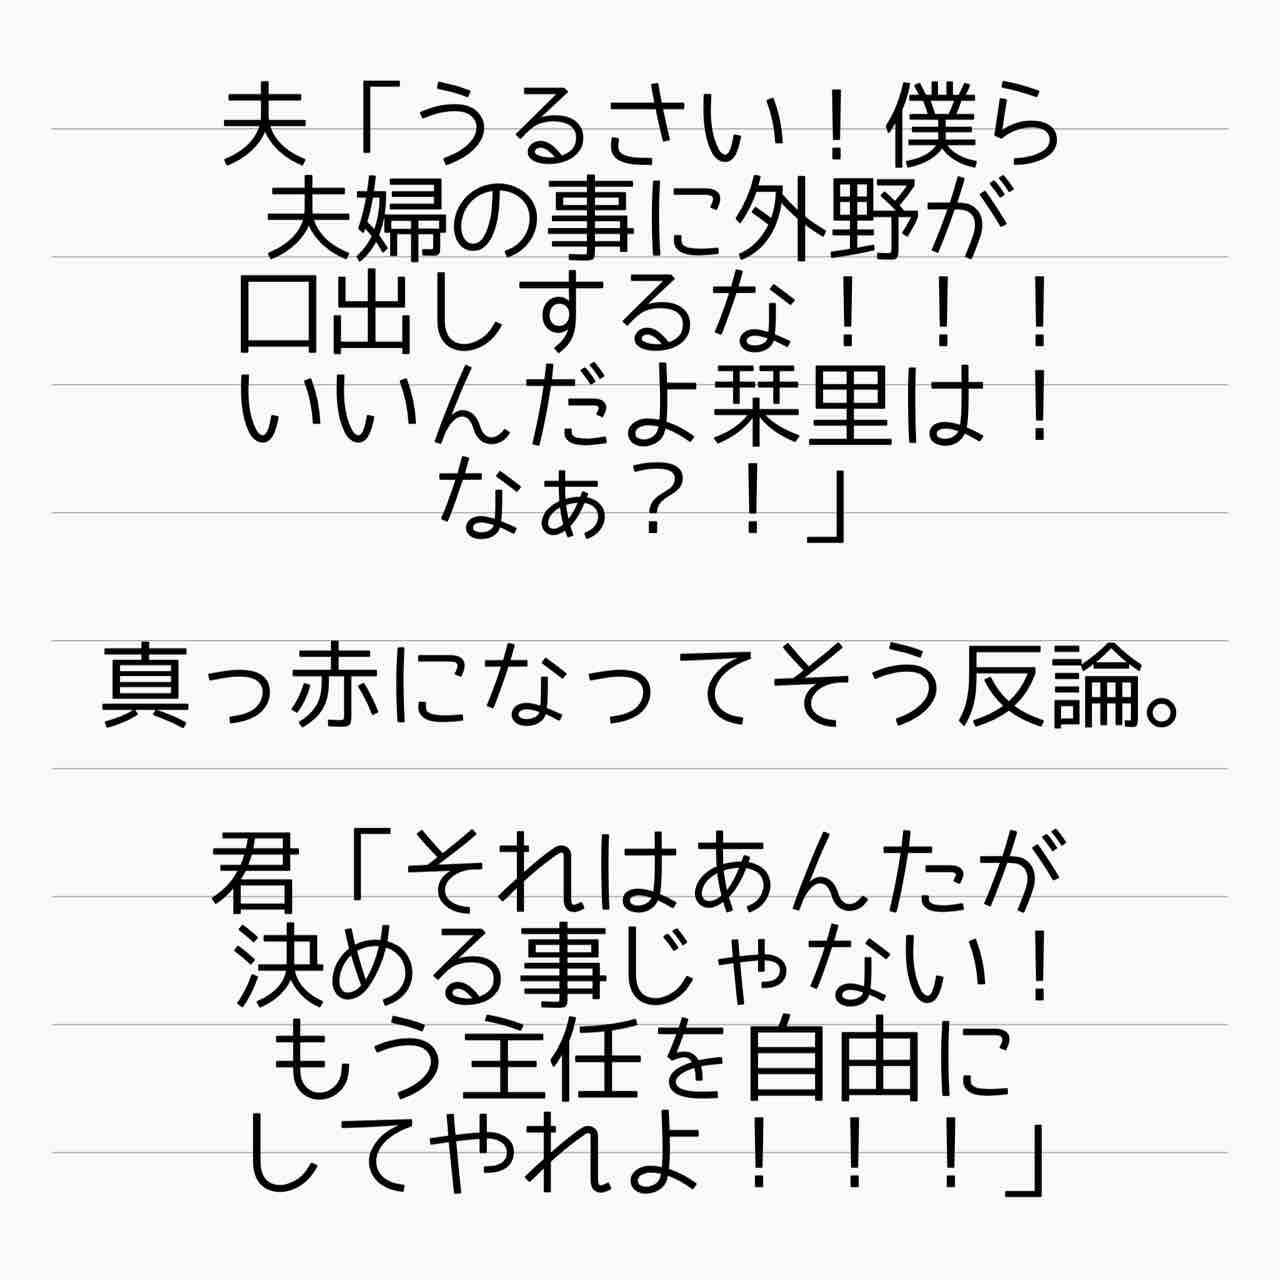 夫「うるさい！僕ら
夫婦の事に外野が
口出しするな！！！
いいんだよ栞里は！
なぁ？！」
真っ赤になってそう反論。
君「それはあんたが
決める事じゃない！
もう主任を自由に
してやれよ！！！」